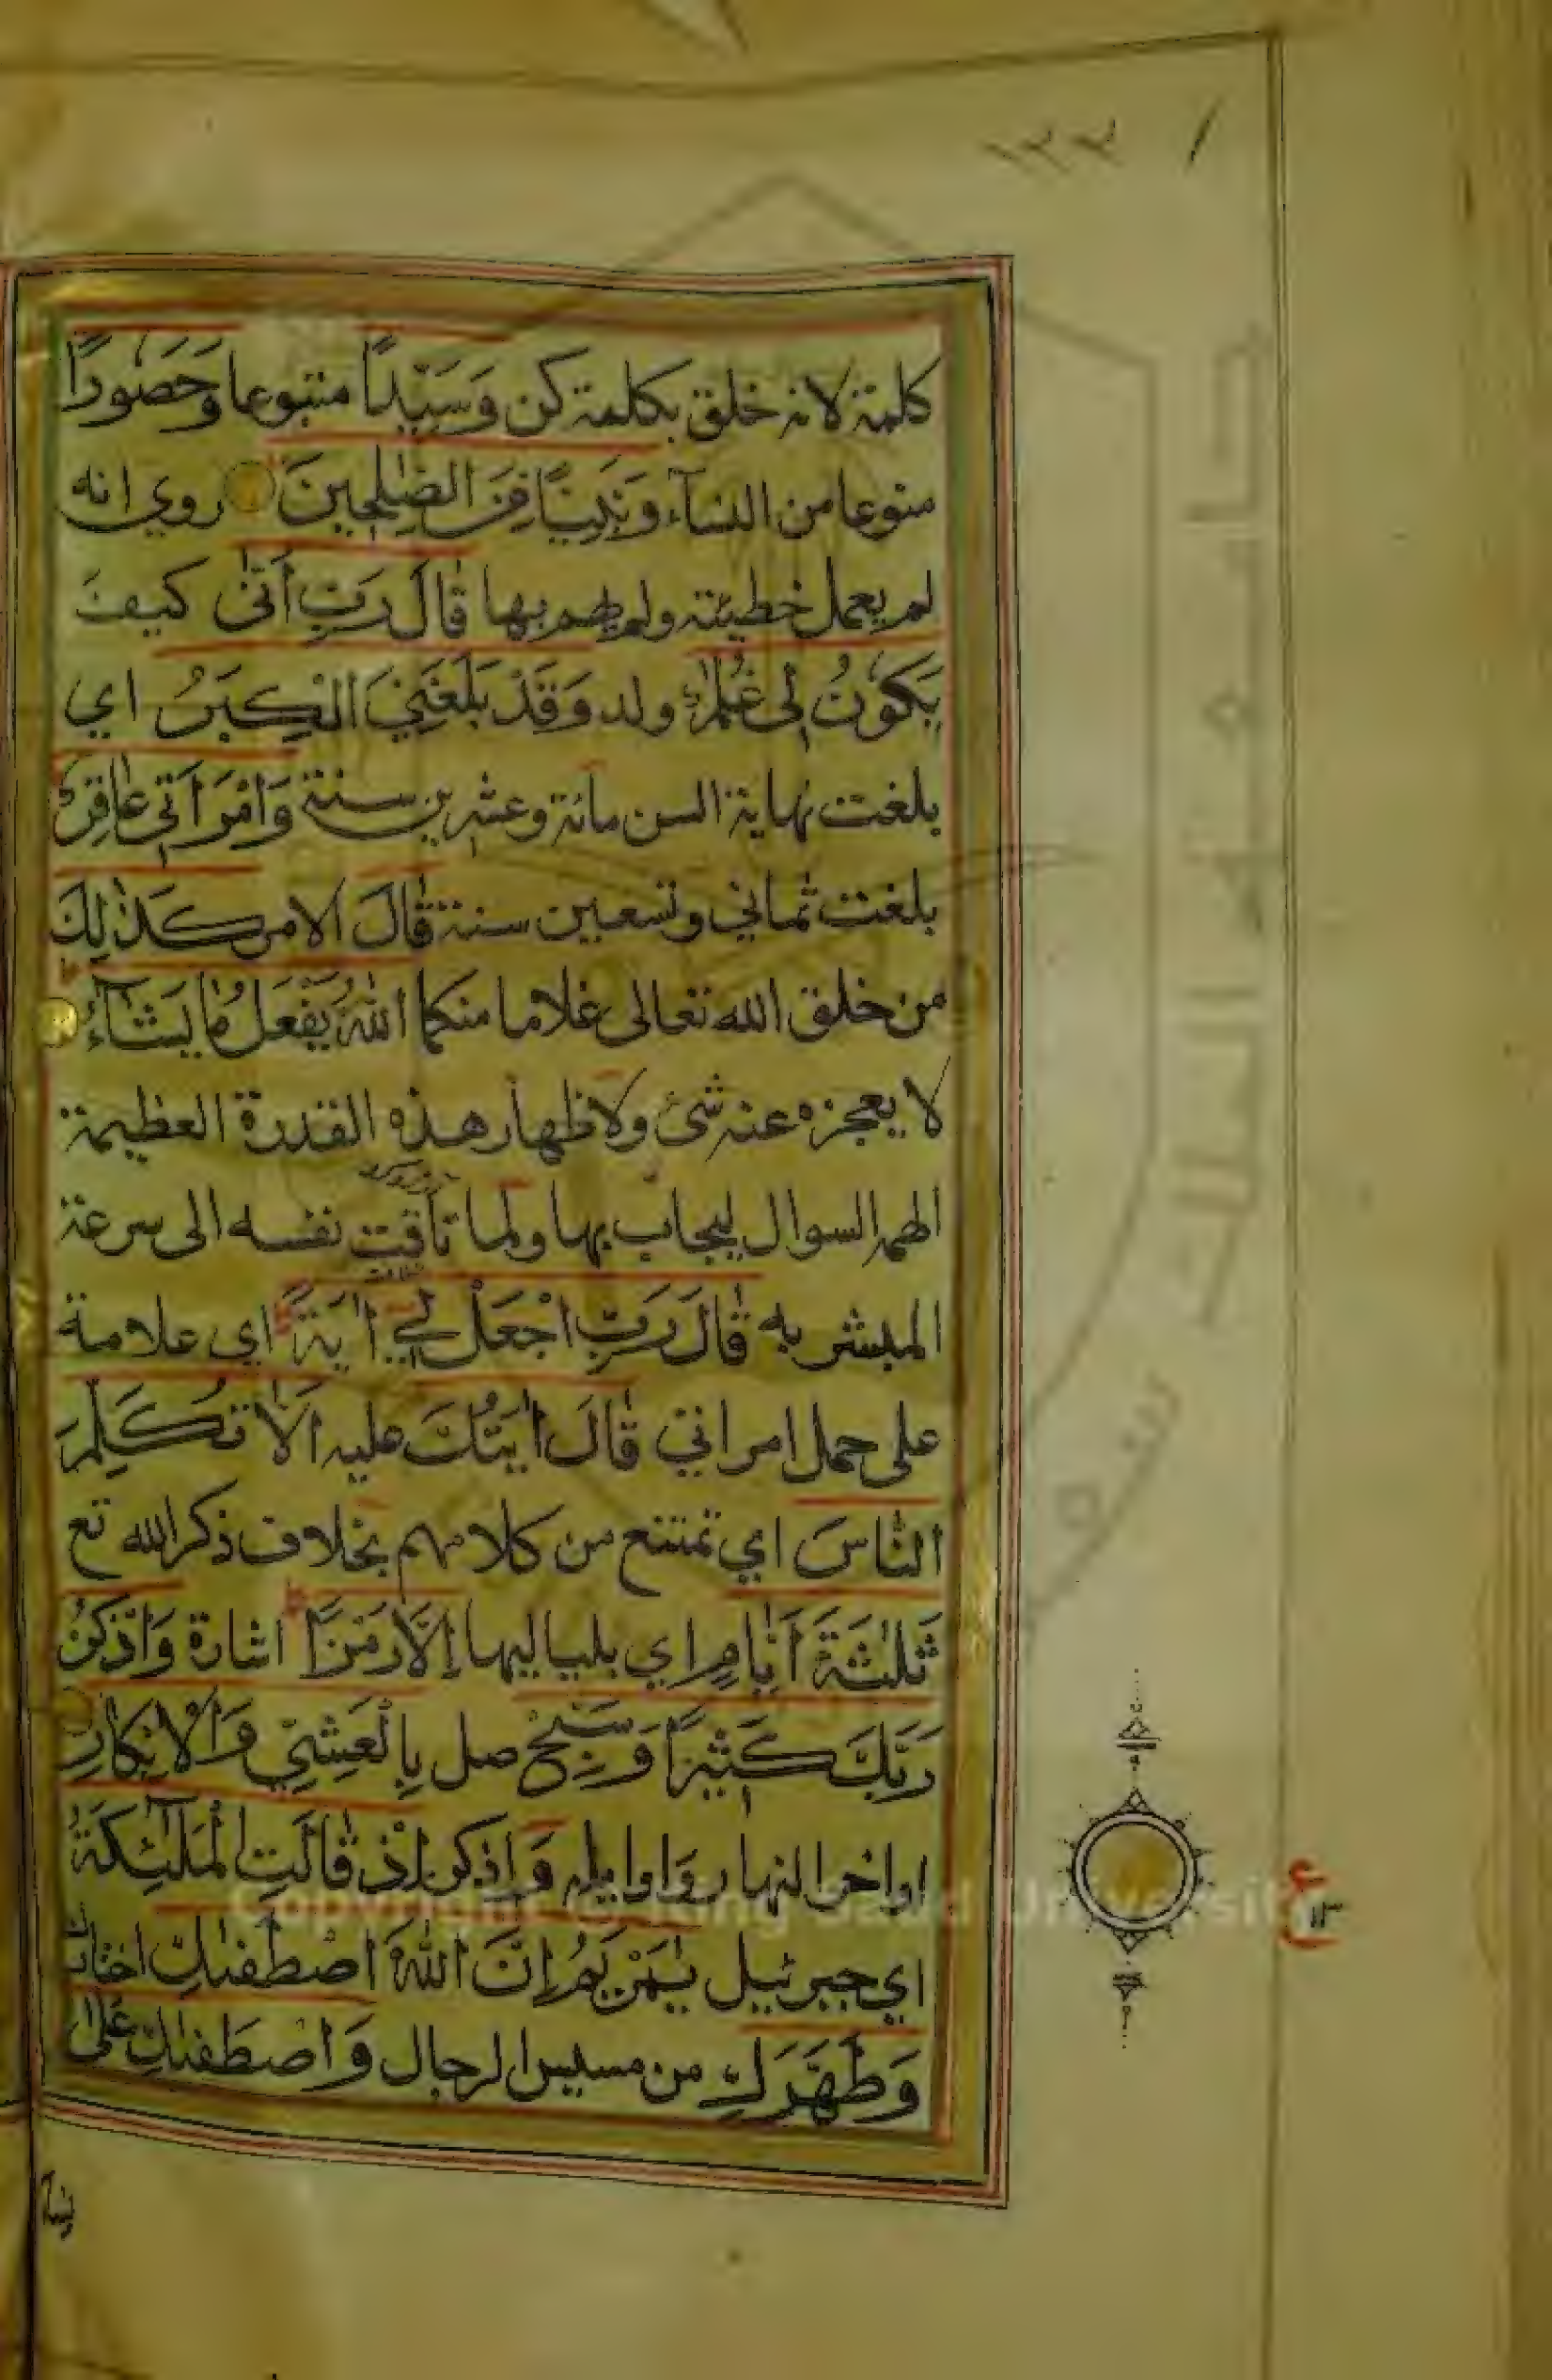 ١٣٣
كلمة لانه خلق بكلمة كن وَسَيِّدًا متبوعا وَحَصُورًا
منوعا من النسآء وَنَبِيًّا مِنَ الصّٰلِحِينَ روي انه
لم يعمل خطيئة ولم يهم بها قَالَ رَبِّ اَنّٰى كيف
يَكُونُ لِي غُلٰمٌ ولد وَقَدْ بَلَغَنِيَ الْكِبَرُ اي
بلغت نهاية السن مائة وعشرين سنة وَامْرَاَتِي عَاقِرٌ
بلغت ثماني وتسعين سنة قَالَ الامر كَذٰلِكَ
من خلق الله تعالى غلاما منكما اللهُ يَفْعَلُ مَا يَشَآءُ
لا يعجزه عنه شئ ولاظهار هذه القدرة العظيمة
الهم السوال ليجاب بها ولما تاقت نفسه الى سرعة
المبشر به قَالَ رَبِّ اجْعَلْ لِي اٰيَةً اي علامة
على حمل امراتي قَالَ اٰيَتُكَ عليه اَلَّا تُكَلِّمَ
النَّاسَ اي تمتنع من كلامهم بخلاف ذكر الله تع
ثَلٰثَةَ اَيَّامٍ اي بلياليها اِلَّا رَمْزًا اشارة وَاذْكُرْ
رَبَّكَ كَثِيْرًا وَسَبِّحْ صل بِالْعَشِيِّ وَالْاِبْكَارِ
اواخر النهار واوايله وَ اذكر اِذْ قَالَتِ الْمَلٰٓئِكَةُ
اي جبرئيل يٰمَرْيَمُ اِنَّ اللهَ اصْطَفٰىكِ اختارك
وَطَهَّرَكِ من مسيس الرجال وَاصْطَفٰىكِ عَلٰى
ع
١٣
جامعة الملك سعود
Copyright © King Saud University